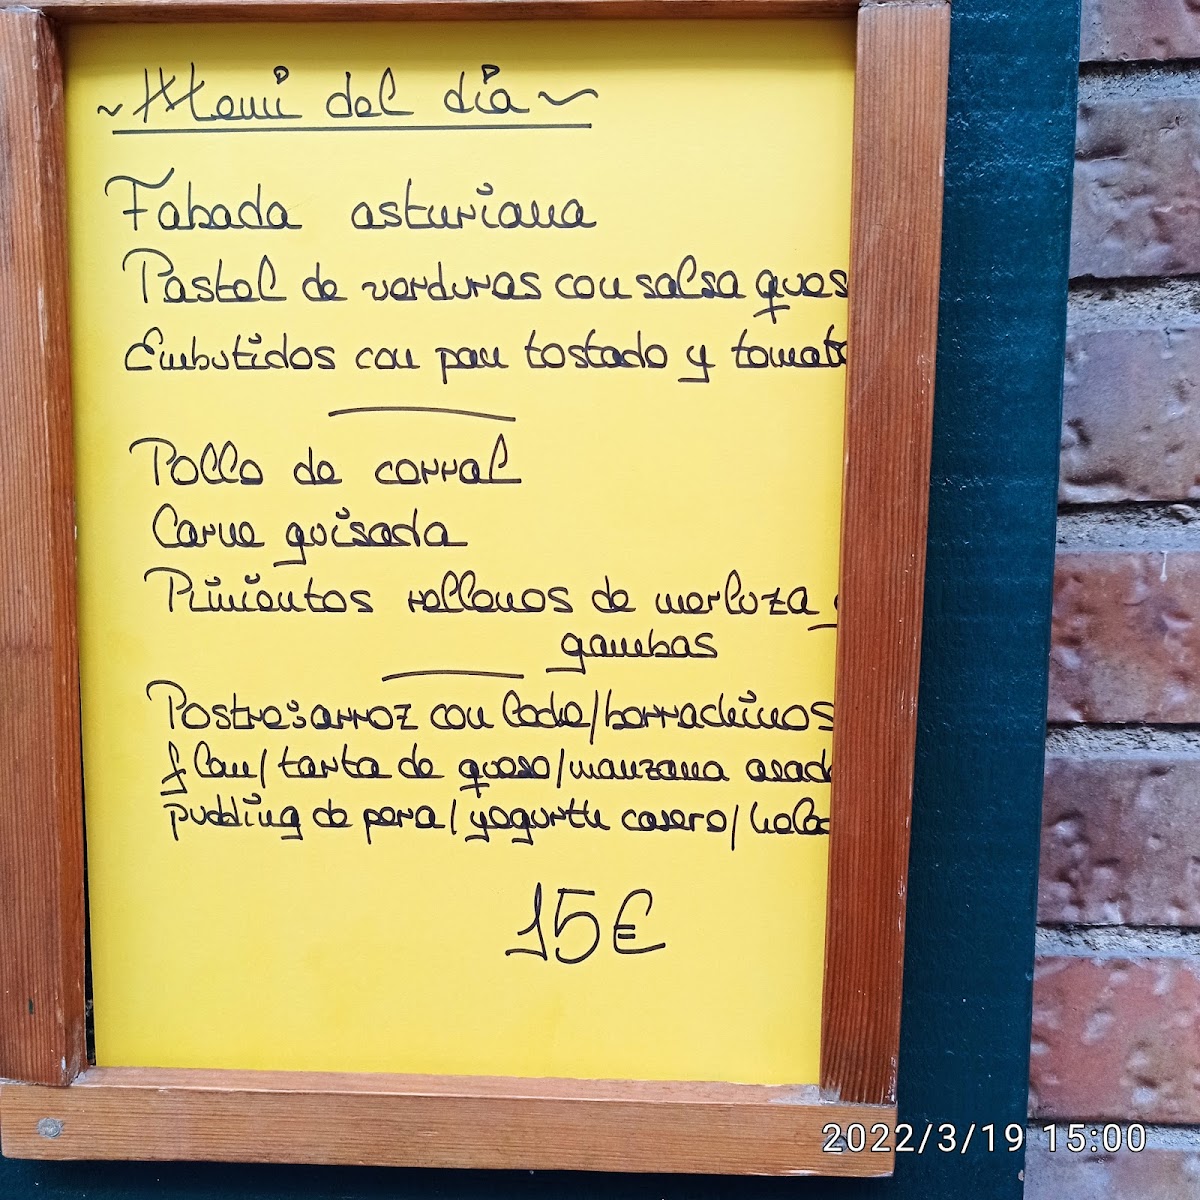 ~ Menú del día ~
Fabada asturiana
Pastel de verduras con salsa ques
Embutidos con pan tostado y tomat
Pollo de corral
Carne guisada
Pimientos rellenos de merluza y
gambas
Postre: arroz con leche/borrachinos
flan/tarta de queso/manzana asad
pudding de pera/yogurth casero/hela
15€
2022/3/19 15:00